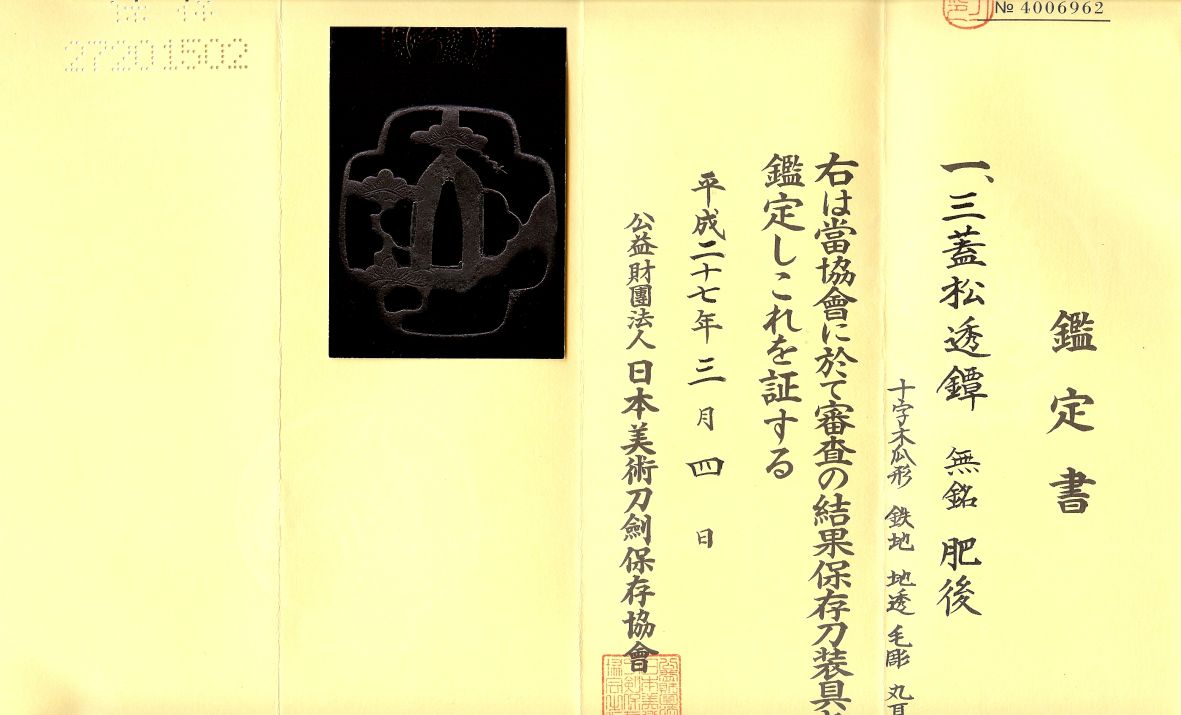 № 4006962
鑑定書
一、三蓋松透鐔 無銘 肥後
十字木瓜形 鉄地 地透 毛彫 丸耳
右は當協會に於て審査の結果保存刀装具と
鑑定しこれを証する
平成二十七年三月四日
公益財團法人 日本美術刀劍保存協會
27201502